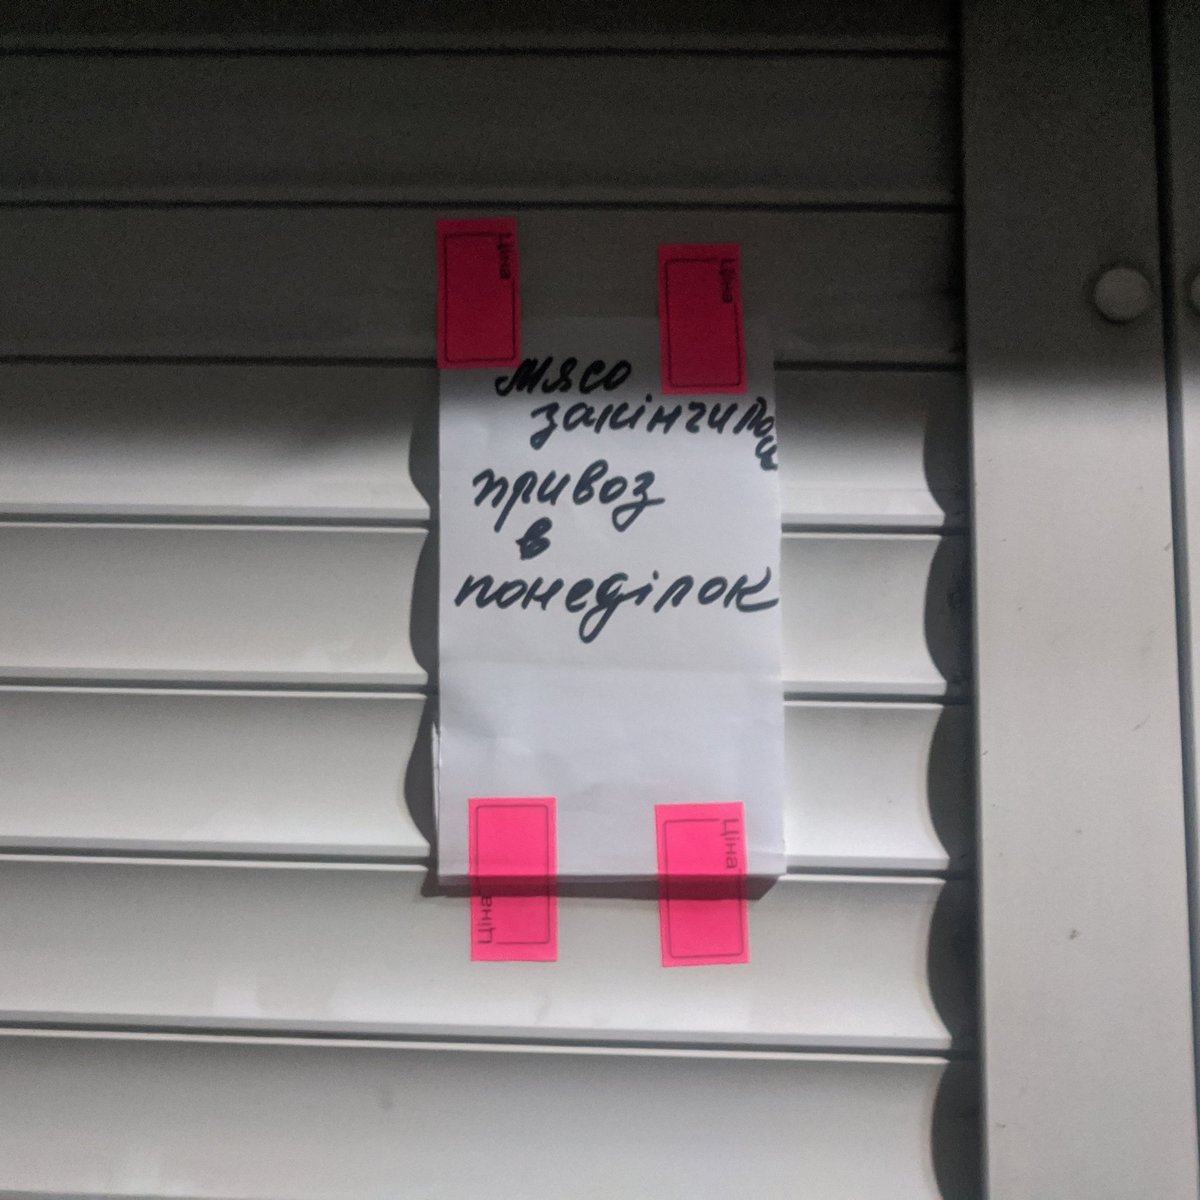 Ціна
Ціна
мясо
закінчилось
привоз
в
понеділок
Ціна
Ціна